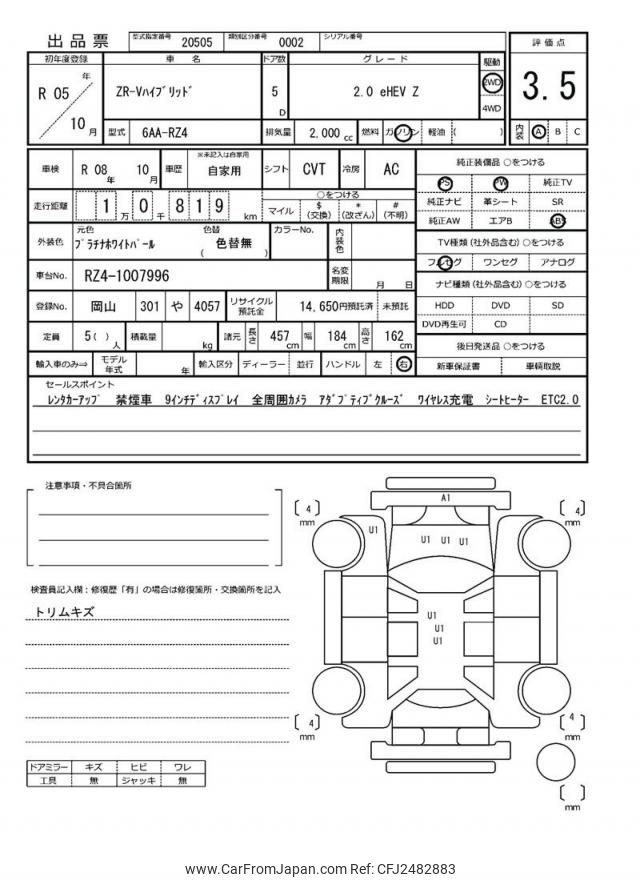 出品票
型式指定番号 20505 類別区分番号 0002 シリアル番号
初年度登録 車名 ドア数 グレード 駆動 評価点
R 05 年 10 月
ZR-Vﾊｲﾌﾞﾘｯﾄﾞ 5 D 2.0 eHEV Z 2WD 4WD
3.5
型式 6AA-RZ4 排気量 2,000 cc 燃料 ガソリン 軽油 ( )
内装 A B C
車検 R 08 年 10 月 車歴 ※未記入は自家用 自家用 シフト CVT 冷房 AC
走行距離 1 万 0 千 8 1 9 km
○をつける
マイル $ (交換) * (改ざん) # (不明)
外装色 元色 ﾌﾟﾗﾁﾅﾎﾜｲﾄﾊﾟｰﾙ 色替 ( 色替無 ) カラーNo. 内装色
車台No. RZ4-1007996 名変期限 月 日
登録No. 岡山 301 や 4057 リサイクル預託金 14,650円預託済 未預託
定員 5 ( ) 人 積載量 kg 諸元 長さ 457 cm 幅 184 cm 高さ 162 cm
輸入車のみ⇒ モデル年式 年 輸入区分 ディーラー 並行 ハンドル 左 右
純正装備品 ○をつける
PS PW 純正TV
純正ナビ 革シート SR
純正AW エアB ABS
TV種類 (社外品含む) ○をつける
フルセグ ワンセグ アナログ
ナビ種類 (社外品含む) ○をつける
HDD DVD SD
DVD再生可 CD
後日発送品 ○をつける
新車保証書 車輌取説
セールスポイント
ﾚﾝﾀｶｰｱｯﾌﾟ 禁煙車 9ｲﾝﾁﾃﾞｨｽﾌﾟﾚｲ 全周囲ｶﾒﾗ ｱﾀﾞﾌﾟﾃｨﾌﾞｸﾙｰｽﾞ ﾜｲﾔﾚｽ充電 ｼｰﾄﾋｰﾀｰ ETC2.0
注意事項・不具合箇所
検査員記入欄：修復歴「有」の場合は修復箇所・交換箇所を記入
トリムキズ
ドアミラー キズ ヒビ ワレ
工具 無 ジャッキ 無
4 mm
A1
4 mm
U1
U1 U1 U1
U1
U1
U1
4 mm
4 mm
mm
www.CarFromJapan.com Ref: CFJ2482883